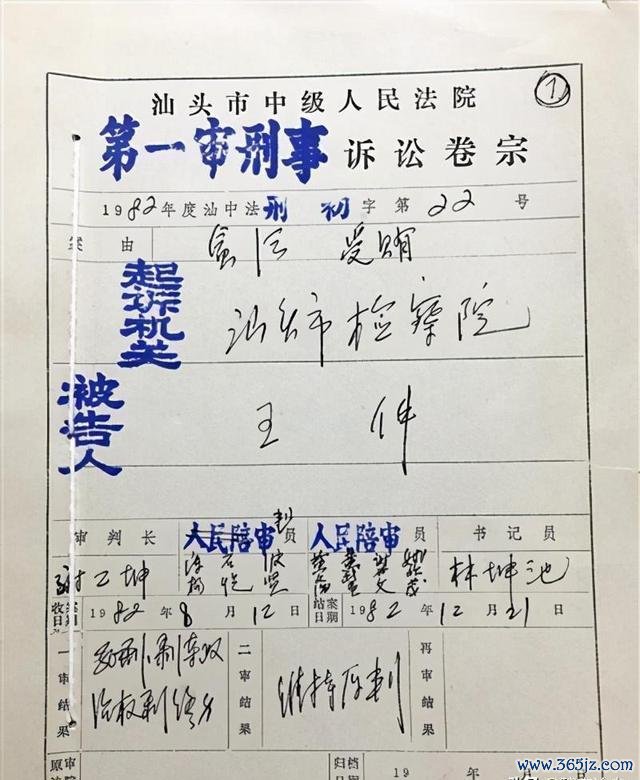 ①
汕头市中级人民法院
第一审刑事诉讼卷宗
1982年度汕中法刑初字第22号
案由 贪污 受贿
起诉机关 汕头市检察院
被告人 王仲
审判长 人民陪审员 判 人民陪审员 书记员
谢工坤 林坤池
收案日期 1982年8月12日 结案日期 1982年12月21日
一审结果 死刑,剥夺政治权利终身 二审结果 维持原判 再审结果
原审 归档日期 19 年 月
www.365jz.com